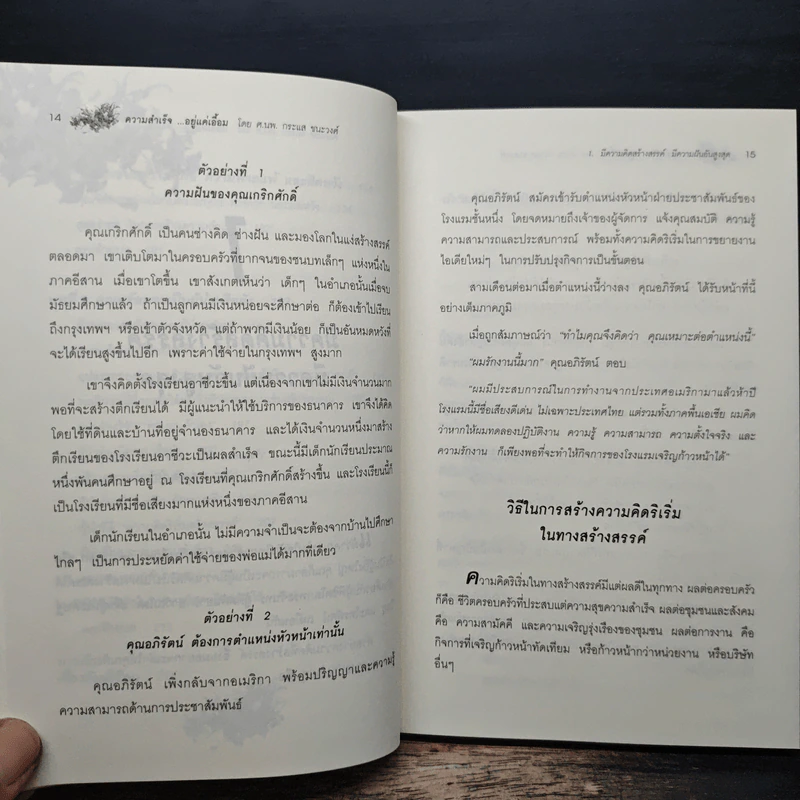 14 ความสำเร็จ ...อยู่แค่เอื้อม โดย ศ.นพ. กระแส ชนะวงศ์
ตัวอย่างที่ 1
ความฝันของคุณเกริกศักดิ์
คุณเกริกศักดิ์ เป็นคนช่างคิด ช่างฝัน และมองโลกในแง่สร้างสรรค์
ตลอดมา เขาเติบโตมาในครอบครัวที่ยากจนของชนบทเล็กๆ แห่งหนึ่งใน
ภาคอีสาน เมื่อเขาโตขึ้น เขาสังเกตเห็นว่า เด็กๆ ในอำเภอนั้นเมื่อจบ
มัธยมศึกษาแล้ว ถ้าเป็นลูกคนมีเงินหน่อยจะศึกษาต่อ ก็ต้องเข้าไปเรียน
ถึงกรุงเทพฯ หรือเข้าตัวจังหวัด แต่ถ้าพวกมีเงินน้อย ก็เป็นอันหมดหวังที่
จะได้เรียนสูงขึ้นไปอีก เพราะค่าใช้จ่ายในกรุงเทพฯ สูงมาก
เขาจึงคิดตั้งโรงเรียนอาชีวะขึ้น แต่เนื่องจากเขาไม่มีเงินจำนวนมาก
พอที่จะสร้างตึกเรียนได้ มีผู้แนะนำให้ใช้บริการของธนาคาร เขาจึงได้คิด
โดยใช้ที่ดินและบ้านที่อยู่จำนองธนาคาร และได้เงินจำนวนหนึ่งมาสร้าง
ตึกเรียนของโรงเรียนอาชีวะเป็นผลสำเร็จ ขณะนี้มีเด็กนักเรียนประมาณ
หนึ่งพันคนศึกษาอยู่ ณ โรงเรียนที่คุณเกริกศักดิ์สร้างขึ้น และโรงเรียนนี้ก็
เป็นโรงเรียนที่มีชื่อเสียงมากแห่งหนึ่งของภาคอีสาน
เด็กนักเรียนในอำเภอนั้น ไม่มีความจำเป็นจะต้องจากบ้านไปศึกษา
ไกลๆ เป็นการประหยัดค่าใช้จ่ายของพ่อแม่ได้มากทีเดียว
ตัวอย่างที่ 2
คุณอภิรัตน์ ต้องการตำแหน่งหัวหน้าเท่านั้น
คุณอภิรัตน์ เพิ่งกลับจากอเมริกา พร้อมปริญญาและความรู้
ความสามารถด้านการประชาสัมพันธ์
1. มีความคิดสร้างสรรค์ มีความฝันอันสูงสุด 15
คุณอภิรัตน์ สมัครเข้ารับตำแหน่งหัวหน้าฝ่ายประชาสัมพันธ์ของ
โรงแรมชั้นหนึ่ง โดยจดหมายถึงเจ้าของผู้จัดการ แจ้งคุณสมบัติ ความรู้
ความสามารถและประสบการณ์ พร้อมทั้งความคิดริเริ่มในการขยายงาน
ไอเดียใหม่ๆ ในการปรับปรุงกิจการเป็นขั้นตอน
สามเดือนต่อมาเมื่อตำแหน่งนี้ว่างลง คุณอภิรัตน์ ได้รับหน้าที่นี้
อย่างเต็มภาคภูมิ
เมื่อถูกสัมภาษณ์ว่า "ทำไมคุณจึงคิดว่า คุณเหมาะต่อตำแหน่งนี้"
"ผมรักงานนี้มาก" คุณอภิรัตน์ ตอบ
"ผมมีประสบการณ์ในการทำงานจากประเทศอเมริกามาแล้วห้าปี
โรงแรมนี้มีชื่อเสียงดีเด่น ไม่เฉพาะประเทศไทย แต่รวมทั้งภาคพื้นเอเชีย ผมคิด
ว่าหากให้ผมทดลองปฏิบัติงาน ความรู้ ความสามารถ ความตั้งใจจริง และ
ความรักงาน ก็เพียงพอที่จะทำให้กิจการของโรงแรมเจริญก้าวหน้าได้"
วิธีในการสร้างความคิดริเริ่ม
ในทางสร้างสรรค์
ความคิดริเริ่มในทางสร้างสรรค์มีแต่ผลดีในทุกทาง ผลต่อครอบครัว
ก็คือ ชีวิตครอบครัวที่ประสบแต่ความสุขความสำเร็จ ผลต่อชุมชนและสังคม
คือ ความสามัคคี และความเจริญรุ่งเรืองของชุมชน ผลต่อการงาน คือ
กิจการที่เจริญก้าวหน้าทัดเทียม หรือก้าวหน้ากว่าหน่วยงาน หรือบริษัท
อื่นๆ